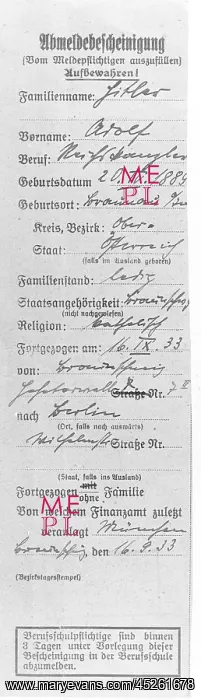 Abmeldebescheinigung
(Vom Meldepflichtigen auszufüllen)
Aufbewahren!
Familienname: Hitler
Vorname: Adolf
Beruf: Reichskanzler
Geburtsdatum 20. 1889
Geburtsort: Braunau Inn
Kreis, Bezirk: Ober-
Staat: Österreich
(falls im Ausland geboren)
Familienstand: ledig
Staatsangehörigkeit: Braunschwg
(nicht nachgewiesen)
Religion: katholisch
Fortgezogen am: 16. IX. 33
von: Braunschweig
Straße Nr.
nach Berlin
(Ort, falls nach auswärts)
Wilhelmstr Straße Nr.
(Staat, falls ins Ausland)
Fortgezogen mit Familie
ohne
Von welchem Finanzamt zuletzt
veranlagt München
Braunschg, den 16.9.33
(Bezirkstagesstempel)
Berufsschulpflichtige sind binnen
3 Tagen unter Vorlegung dieser
Bescheinigung in der Berufsschule
abzumelden.
ME
PL
ME
PL
www.maryevans.com/45261678